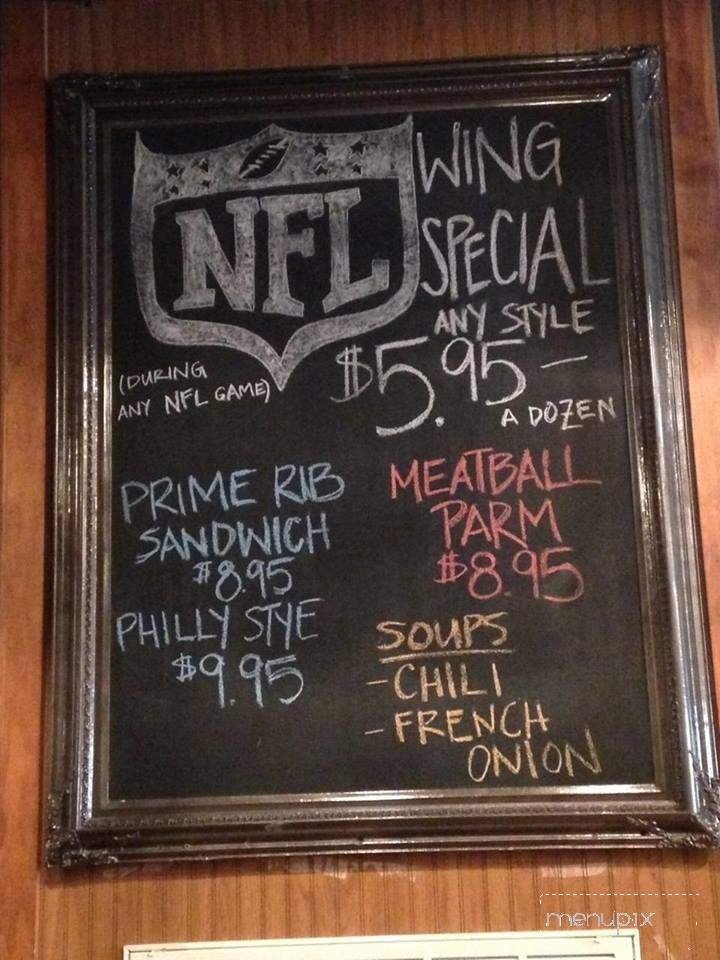 NFL
WING
SPECIAL
ANY STYLE
$5.95
A DOZEN
(DURING
ANY NFL GAME)
PRIME RIB
SANDWICH
$8.95
PHILLY STYE
$9.95
MEATBALL
PARM
$8.95
SOUPS
-CHILI
-FRENCH
ONION
menupix